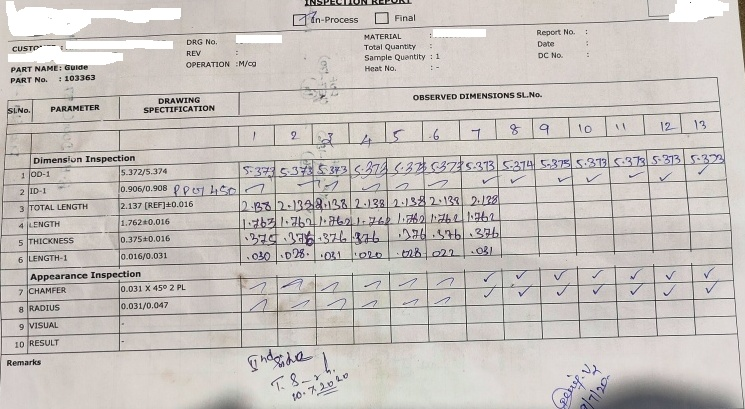 INSPECTION REPORT
In-Process Final
CUSTO
PART NAME: Guide
PART No. : 103363
DRG No.
REV :
OPERATION :M/cg
MATERIAL :
Total Quantity :
Sample Quantity : 1
Heat No. : -
Report No. :
Date :
DC No. :
SLNo. PARAMETER DRAWING SPECTIFICATION OBSERVED DIMENSIONS SL.No.
1 2 3 4 5 6 7 8 9 10 11 12 13
Dimension Inspection
1 OD-1 5.372/5.374 5.373 5.373 5.373 5.373 5.373 5.373 5.373 5.374 5.375 5.373 5.373 5.373
2 ID-1 0.906/0.908
3 TOTAL LENGTH 2.137 [REF]±0.016 2.138 2.138 2.138 2.138 2.138 2.138 2.138
4 LENGTH 1.762±0.016 1.763 1.762 1.762 1.762 1.762 1.762 1.762
5 THICKNESS 0.375±0.016 .375 .376 .376 .376 .376 .376 .376
6 LENGTH-1 0.016/0.031 .030 .028 .031 .020 .028 .022 .031
Appearance Inspection
7 CHAMFER 0.031 X 45º 2 PL
8 RADIUS 0.031/0.047
9 VISUAL -
10 RESULT -
Remarks
IInd side
10.7.2020